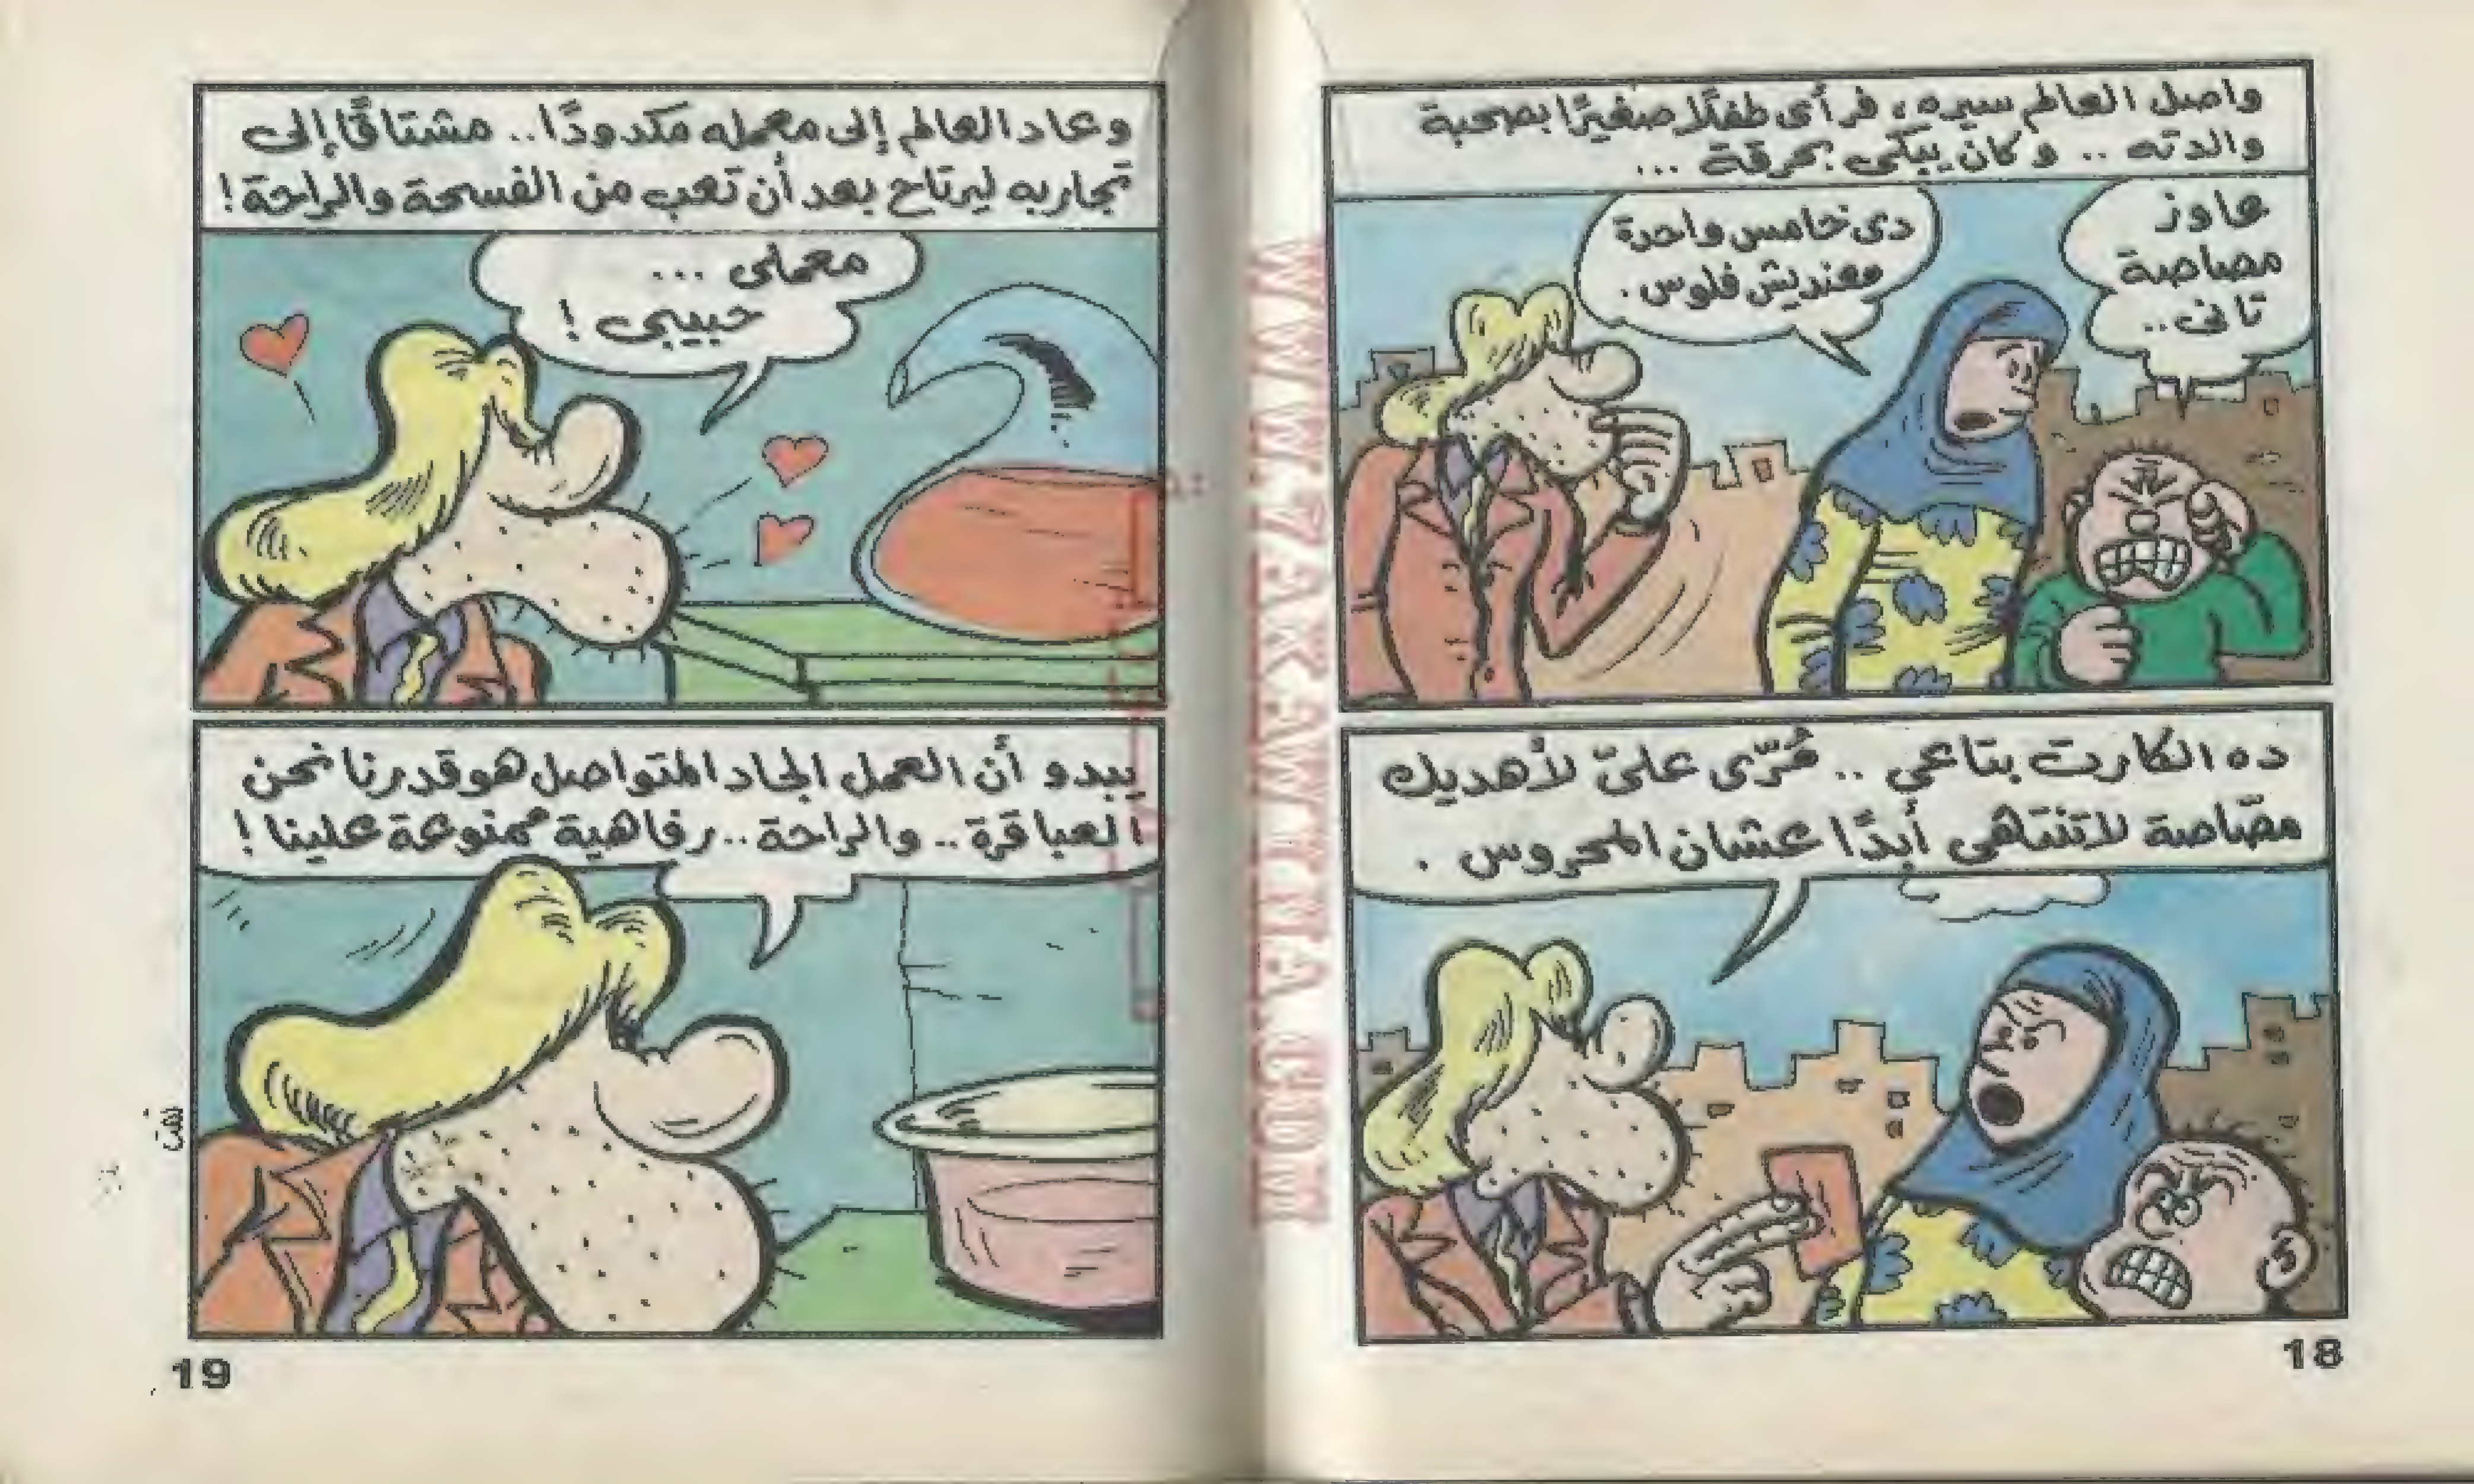 واصل العالم سيره، فرأى طفلًا صغيرًا بصحبة
والدته .. وكان يبكى بحرقة ...
عاوز
مصاصة
تانى..
دى خامس واحدة
معنديش فلوس.
ده الكارت بتاعي .. مُرّى علىّ لأهديك
مصّاصة لا تنتهى أبدًا عشان المحروس .
18
وعاد العالم إلى معمله مكدودًا.. مشتاقًا إلى
تجاربه ليرتاح بعد أن تعب من الفسحة والراحة!
معملى ...
حبيبى !
يبدو أن العمل الجاد المتواصل هو قدرنا نحن
العباقرة .. والراحة .. رفاهية ممنوعة علينا !
19